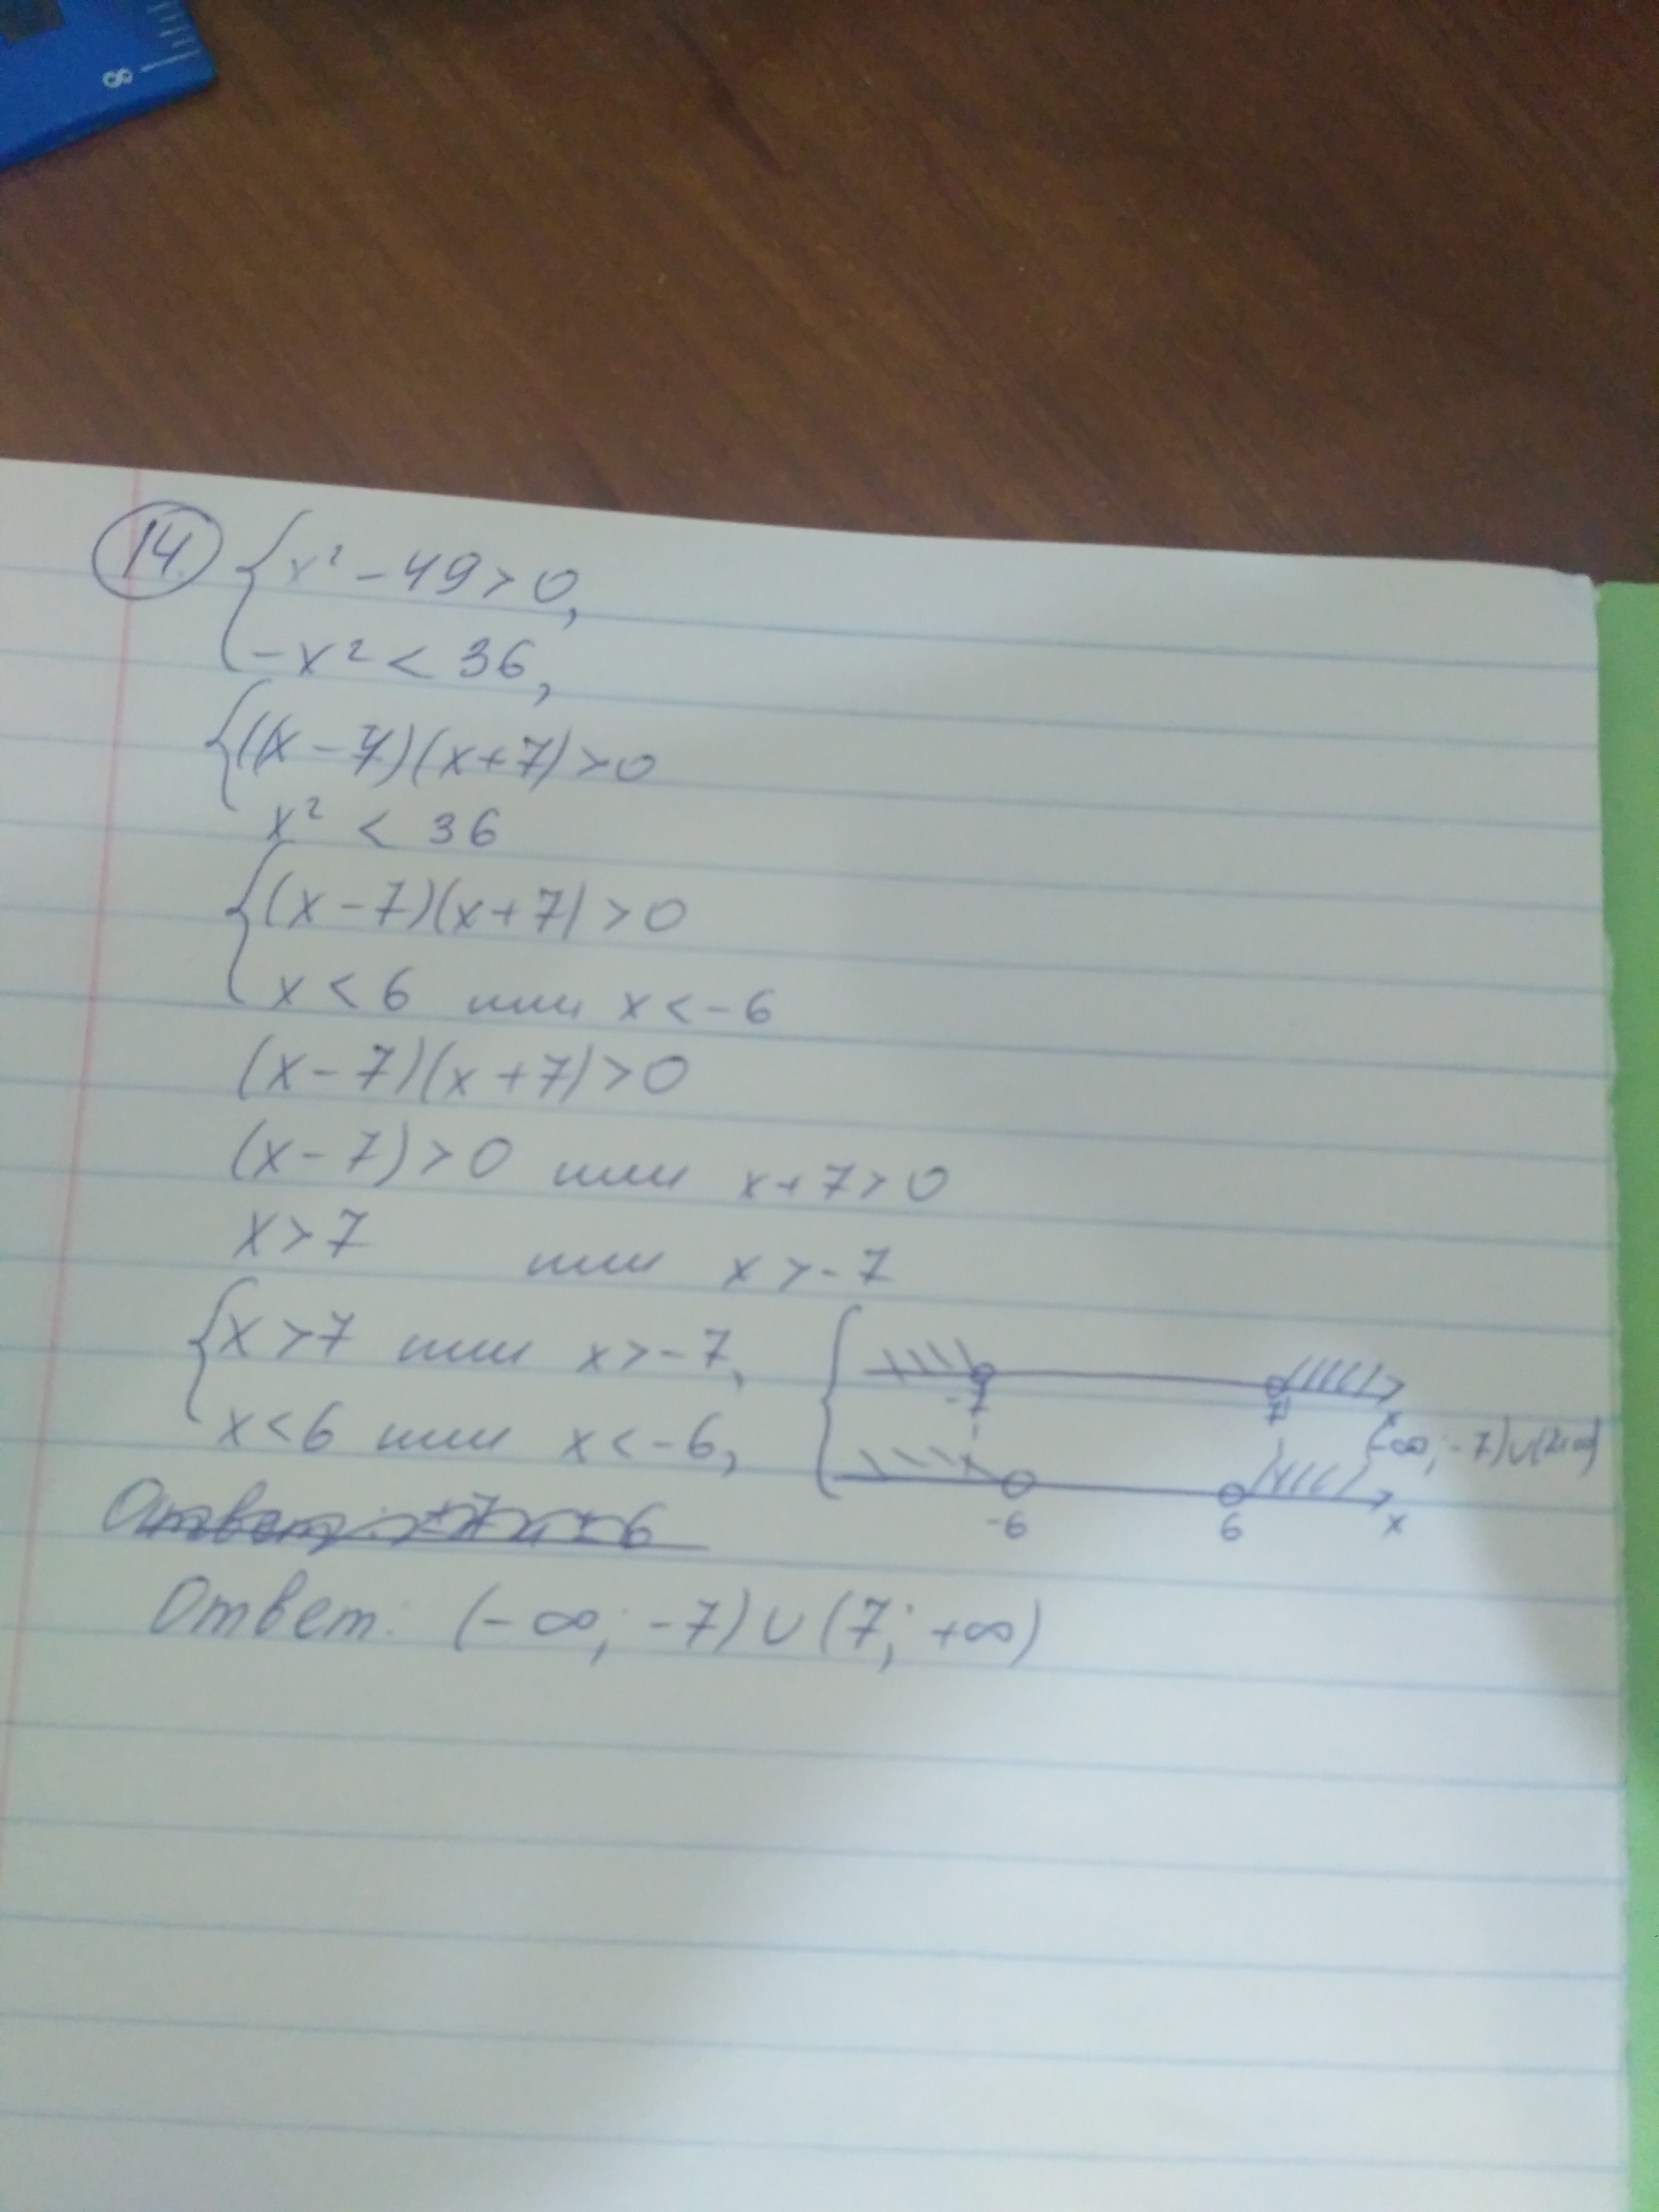 8
14. { x² - 49 > 0,
-x² < 36,
{ (x - 7)(x+7) > 0
x² < 36
{ (x - 7)(x + 7) > 0
x < 6 или x < -6
(x - 7)(x + 7) > 0
(x - 7) > 0 или x + 7 > 0
x > 7 или x > -7
{ x > 7 или x > -7,
x < 6 или x < -6,
-7 7 x
(-∞; -7)∪(7;+∞)
-6 6 x
Ответ: (-∞; -7) ∪ (7; +∞)